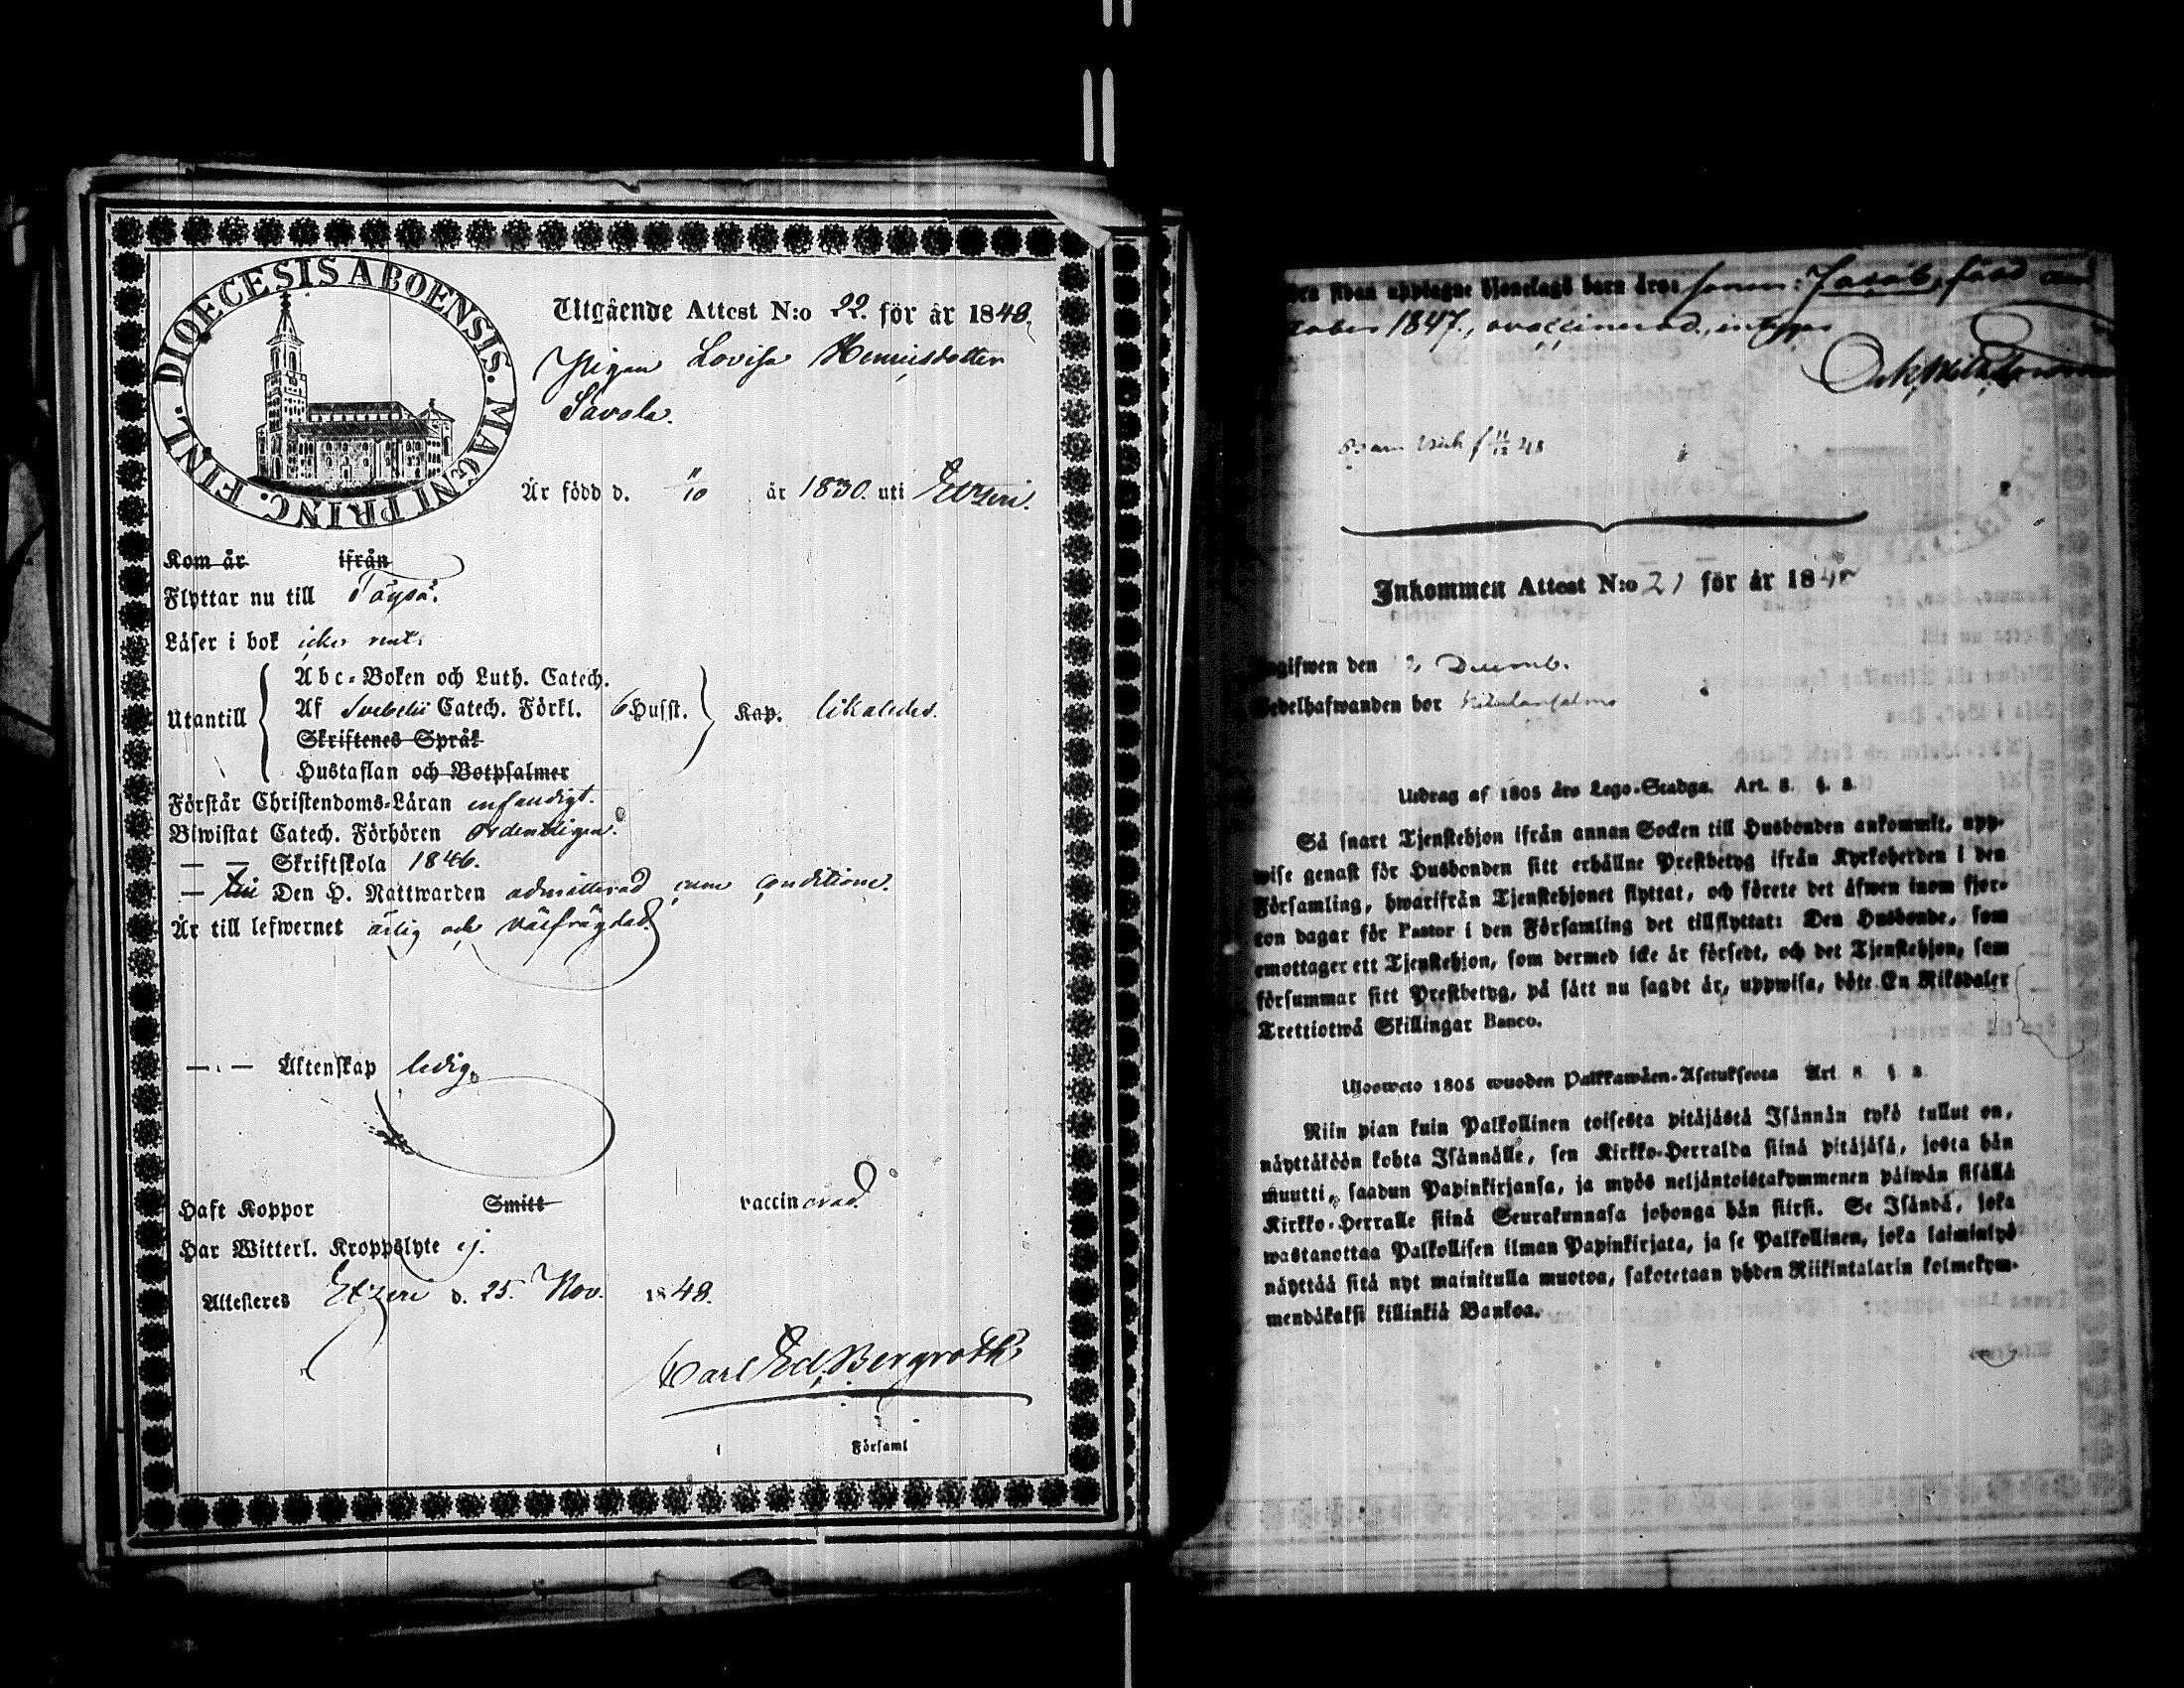 DIOECESIS ABOENSIS. MAGNI PRINC. FINL.
Utgående Attest N:o 22. för år 1848.
Pigan Lovisa Henricsdotter
Savola.
Är född d. 11/10 år 1830. uti Etzeri.
Kom år ifrån
Flyttar nu till Töysä.
Läser i bok icke rent.
Utantill
Abc-Boken och Luth. Catech.
Af Svebelii Catech. Förkl. 6 Husst. Kap. likaledes.
Skriftenes Språk
Hustaflan och Botpsalmer
Förstår Christendoms-Läran enfaudigt.
Biwistat Catech. Förhören Ordentligen.
— — Skriftskola 1846.
— Till Den H. Nattwarden admitterad cum conditione.
Är till lefwernet ärlig och välfrägdad.
— . — Äktenskap ledig.
Haft Koppor Smitt vaccinerad.
Har Witterl. Kroppslyte ej.
Attesteres Etzeri d. 25. Nov. 1848.
Carl Ed. Bergroth
i Församl
uppdagne hjonelags barn äro: sonen: Jacob, född
1847., ovaccinerad,
48
Inkommen Attest N:o 21 för år 184
gifwen den Decemb.
edelhafwanden bor
Utdrag af 1805 års Lego-Stadga. Art. 8. §. 8.
Så snart Tjenstehjon ifrån annan Socken till Husbonden ankommit, upp-
wise genast för Husbonden sitt erhållne Prestbetyg ifrån Kyrkoherden i den
Församling, hwarifrån Tjenstehjonet flyttat, och förete det äfwen inom fjor-
ton dagar för Pastor i den Församling det tillflyttat: Den Husbonde, som
emottager ett Tjenstehjon, som dermed icke är försedt, och det Tjenstehjon, som
försummar sitt Prestbetyg, på sätt nu sagdt är, uppwisa, böte En Riksdaler
Trettiotwå Skillingar Banco.
Uloosweto 1805 wuoden Palkkawäen-Asetuksesta Art. 8. §. 8.
Niin pian kuin Palkollinen toisesta pitäjästä Isännän tykö tullut on,
näyttäköön kohta Isännälle, sen Kirkko-Herralda siinä pitäjäsä, josta hän
muutti, saadun Papinkirjansa, ja myös neljäntoistakymmenen päiwän sisällä
Kirkko-Herralle siinä Seurakunnasa johonga hän siirsi. Se Isändä, joka
wastanottaa Palkollisen ilman Papinkirjata, ja se Palkollinen, joka laiminlyö
näyttää sitä nyt mainitulla muotoa, sakotetaan yhden Riikintalarin kolmekym-
mendäkaksi killinkiä Bankoa.